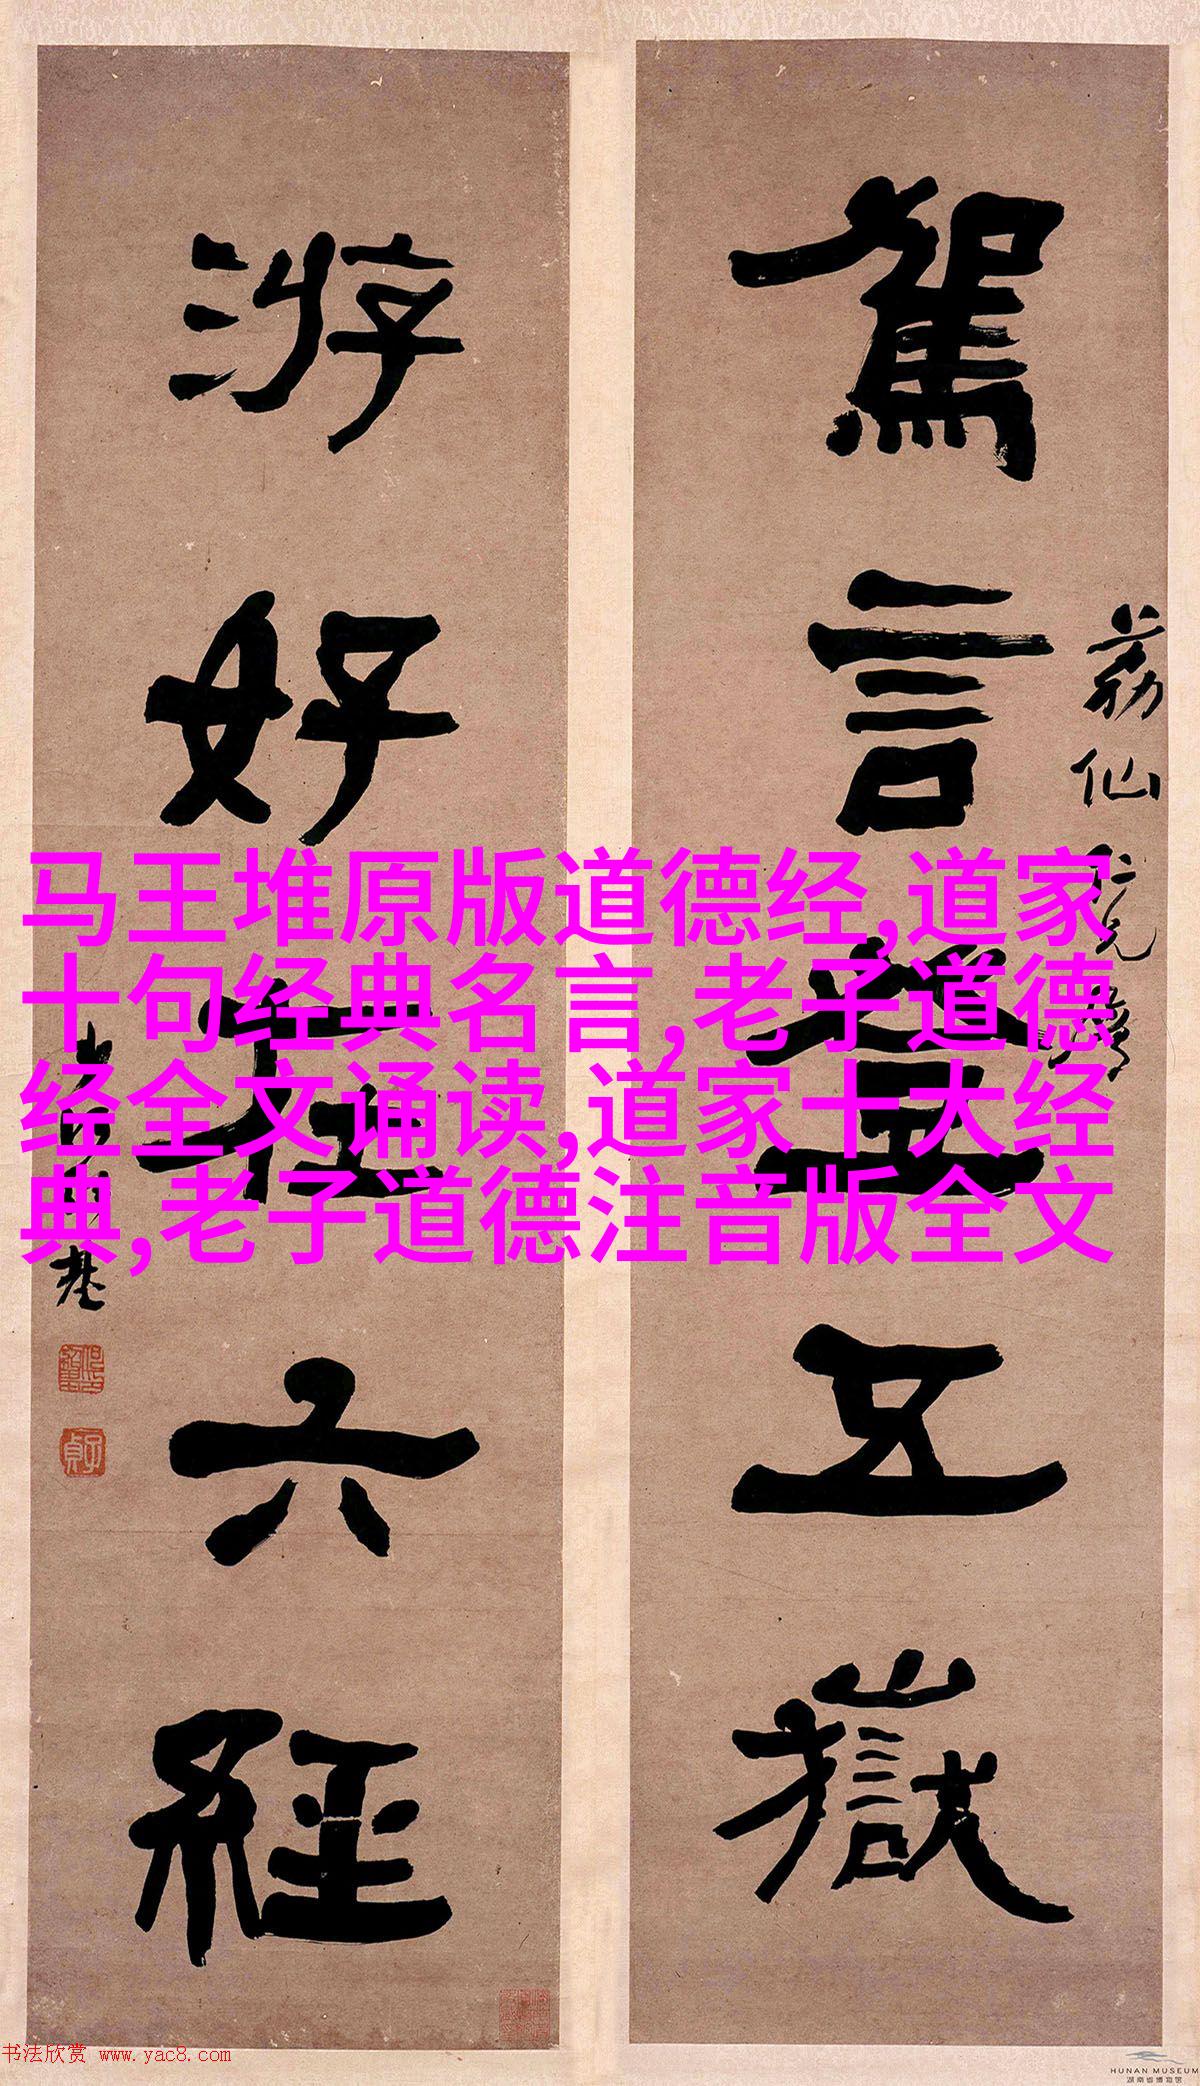 駕言登五嶽
荔仙
游好在六經
何紹基
子貞
马王堆原版道德经,道家
十句经典名言,老子道德
经全文诵读,道家十大经
典,老子道德注音版全文
书法欣赏 www.yac8.com
HUNAN MUSEUM
湖南省博物馆